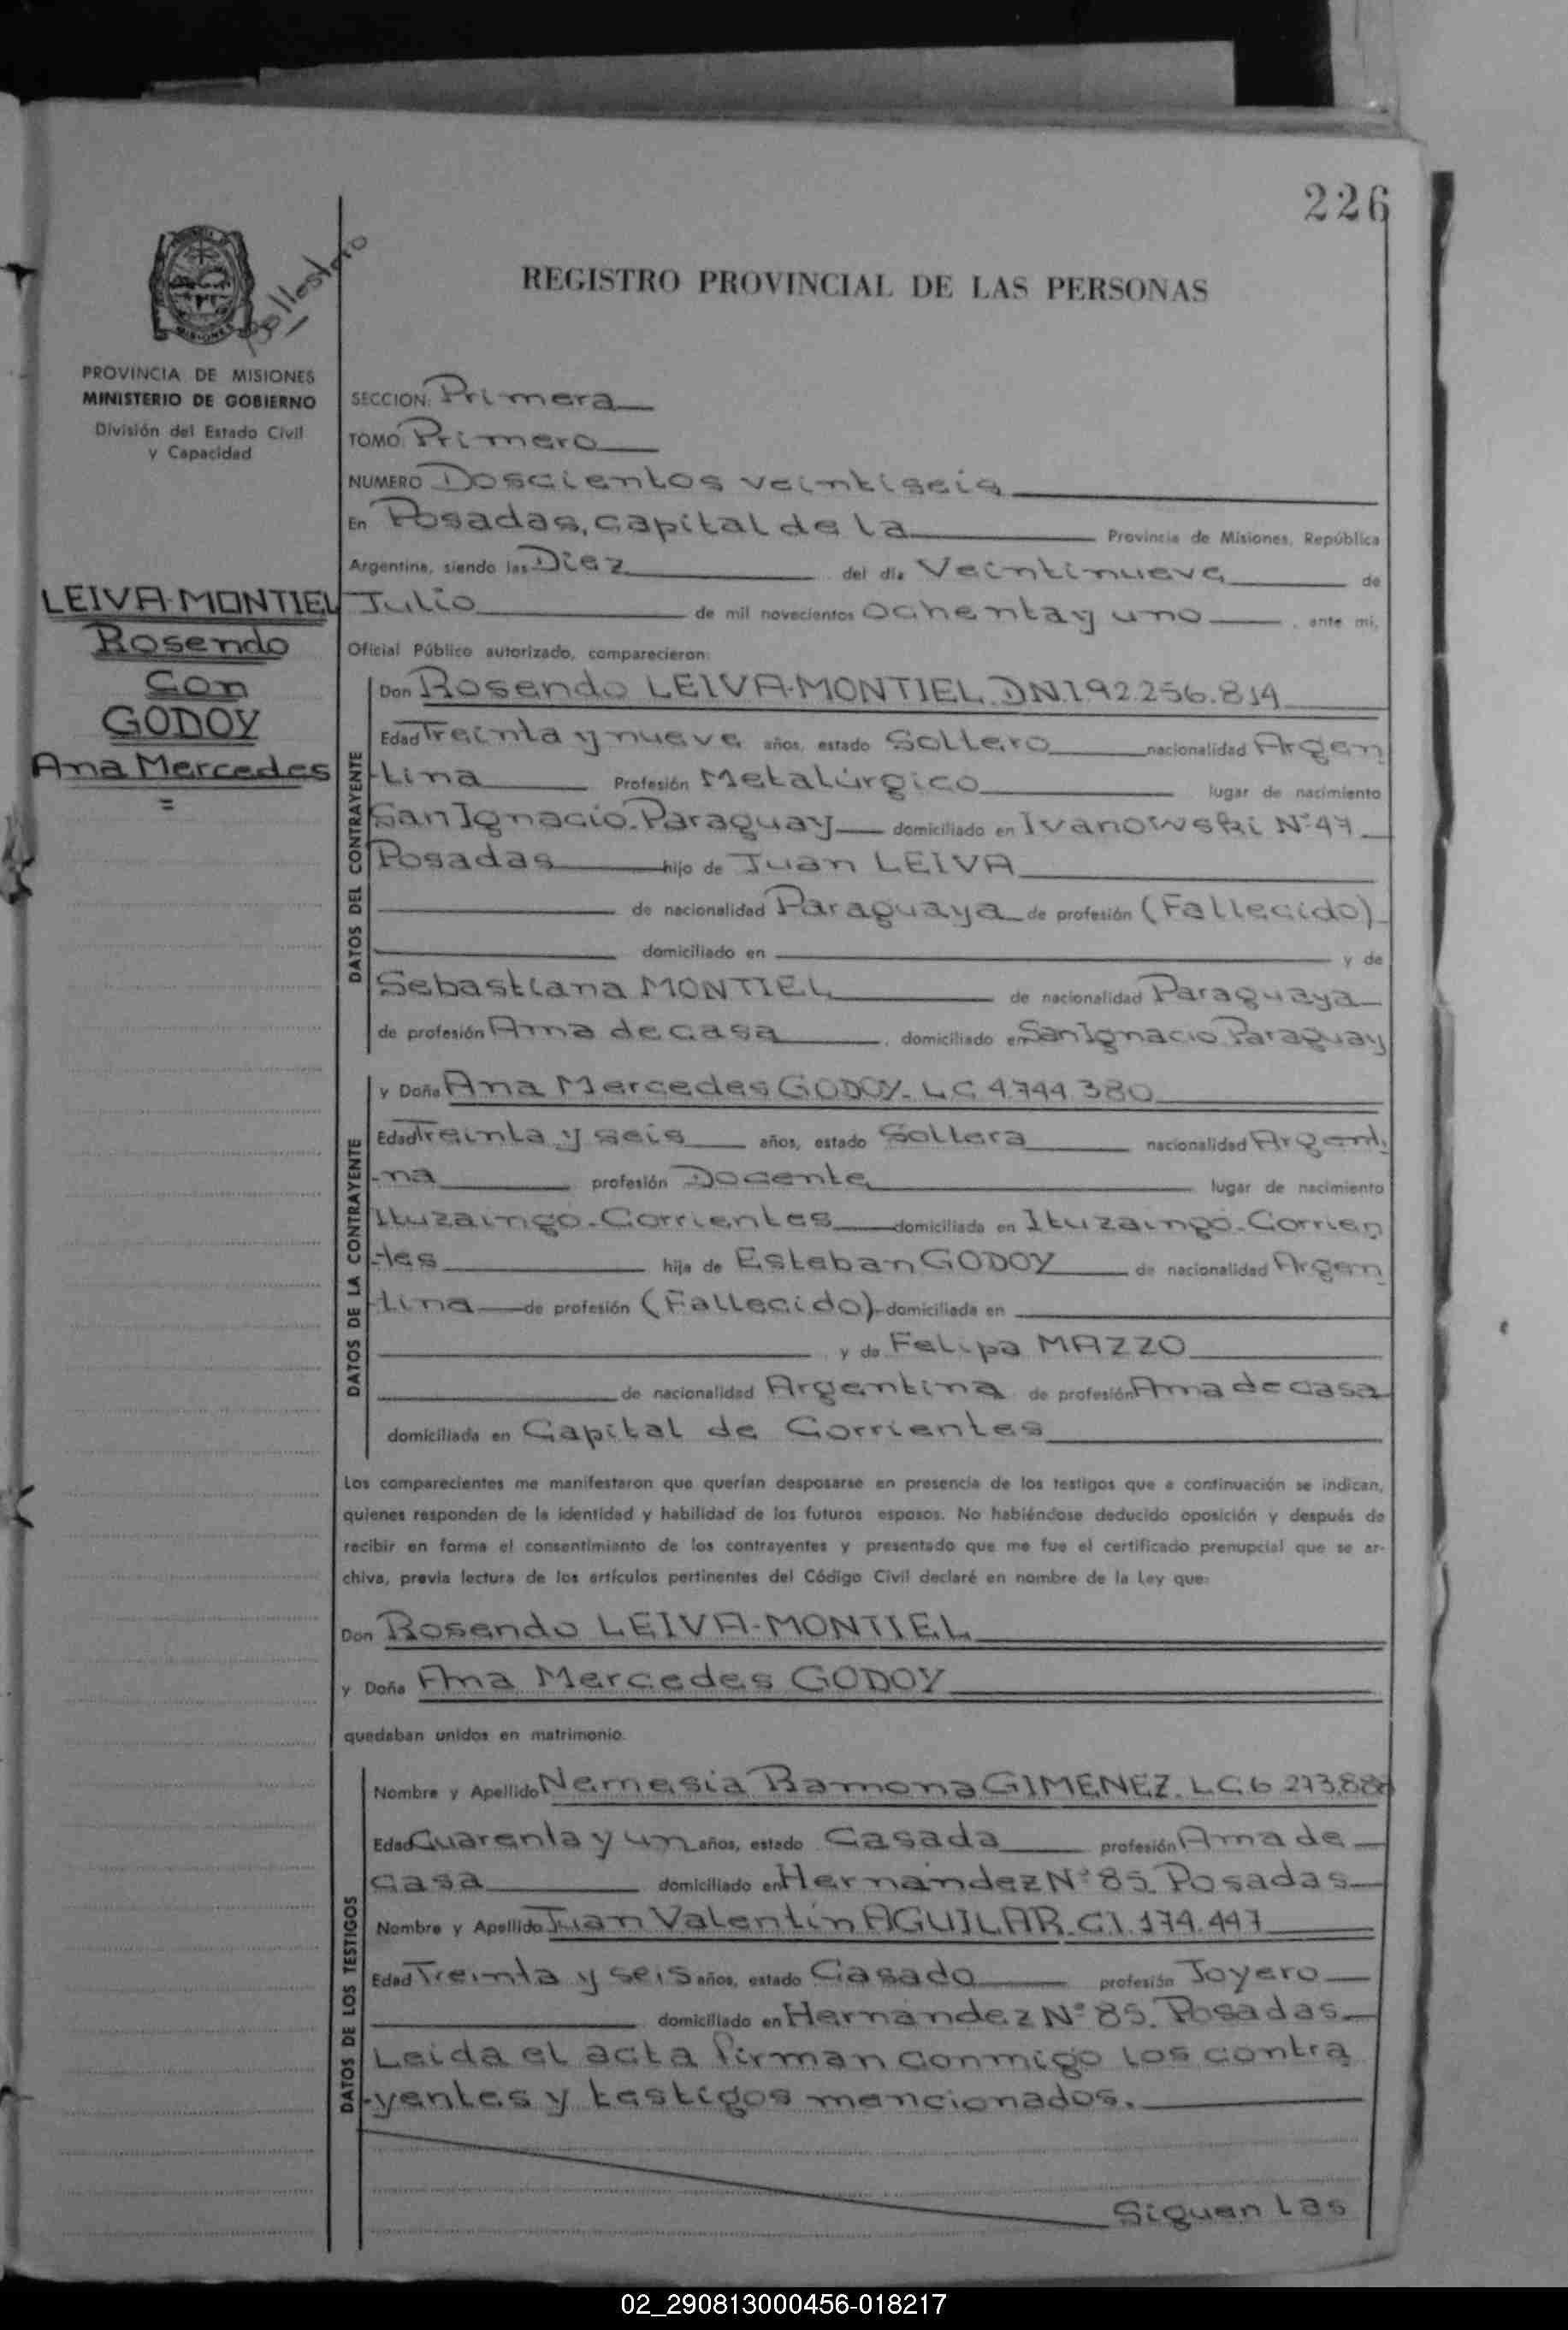 226
REGISTRO PROVINCIAL DE LAS PERSONAS
PROVINCIA DE MISIONES
MINISTERIO DE GOBIERNO
División del Estado Civil
y Capacidad
LEIVA-MONTIEL
Rosendo
Con
GODOY
Ana Mercedes
=
SECCION: Primera
TOMO: Primero
NUMERO Doscientos veintiseis
En Posadas, capital de la Provincia de Misiones, República
Argentina, siendo las Diez del día Veintinueve de
Julio de mil novecientos ochenta y uno, ante mí,
Oficial Público autorizado, comparecieron:
DATOS DEL CONTRAYENTE
Don Rosendo LEIVA-MONTIEL. DNI 92.256.814
Edad Treinta y nueve años, estado Soltero nacionalidad Argen
-tina Profesión Metalúrgico lugar de nacimiento
San Ignacio-Paraguay domiciliado en Ivanowski Nº 47
Posadas hijo de Juan LEIVA
de nacionalidad Paraguaya de profesión (Fallecido)
domiciliado en y de
Sebastiana MONTIEL de nacionalidad Paraguaya
de profesión Ama de casa, domiciliado en San Ignacio Paraguay
DATOS DE LA CONTRAYENTE
y Doña Ana Mercedes GODOY. L.C. 4.744.380
Edad Treinta y seis años, estado Soltera nacionalidad Argenti
-na profesión Docente lugar de nacimiento
Ituzaingó-Corrientes domiciliada en Ituzaingó-Corrien
-tes hija de Esteban GODOY de nacionalidad Argen
tina de profesión (Fallecido) domiciliada en
y de Felipa MAZZO
de nacionalidad Argentina de profesión Ama de casa
domiciliada en Capital de Corrientes
Los comparecientes me manifestaron que querían desposarse en presencia de los testigos que a continuación se indican,
quienes responden de la identidad y habilidad de los futuros esposos. No habiéndose deducido oposición y después de
recibir en forma el consentimiento de los contrayentes y presentado que me fue el certificado prenupcial que se ar-
chiva, previa lectura de los artículos pertinentes del Código Civil declaré en nombre de la Ley que:
Don Rosendo LEIVA-MONTIEL
y Doña Ana Mercedes GODOY
quedaban unidos en matrimonio.
DATOS DE LOS TESTIGOS
Nombre y Apellido Nemesia Ramona GIMENEZ. L.C. 6.273.888
Edad Cuarenta y un años, estado Casada profesión Ama de
casa domiciliado en Hernández Nº 85. Posadas
Nombre y Apellido Juan Valentín AGUILAR. C.I. 174.447
Edad Treinta y seis años, estado Casado profesión Joyero
domiciliado en Hernández Nº 85. Posadas
Leida el acta firman conmigo los contra
-yentes y testigos mencionados.
Siguen las
02_290813000456-018217